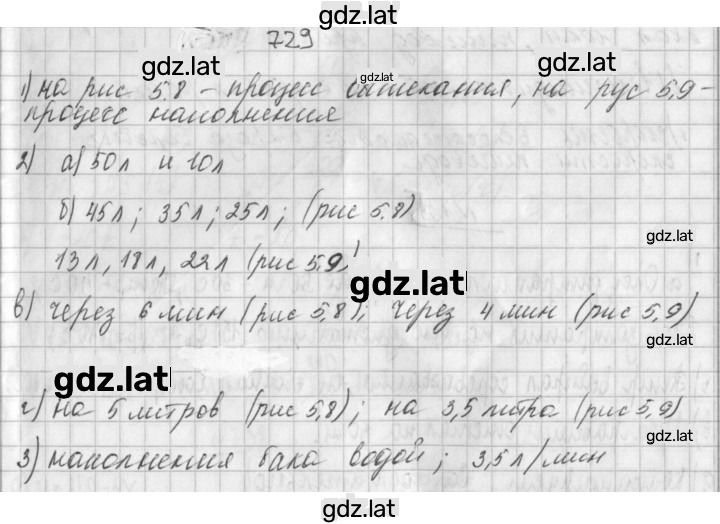 gdz.lat
729
gdz.lat
gdz.lat
gdz.lat
1) на рис 5,8 - процесс вытекания, на рус 5,9 -
процесс наполнения
2) а) 50л и 10л
б) 45л; 35л; 25л; (рис 5,8)
gdz.lat
13л, 18л, 22л (рис 5,9)
gdz.lat
в) через 6 мин (рис 5,8); через 4 мин (рис 5,9)
gdz.lat
gdz.lat
г) на 5 литров (рис 5,8); на 3,5 литра (рис 5,9)
gdz.lat
3) наполнения бака водой; 3,5 л/мин
gdz.lat